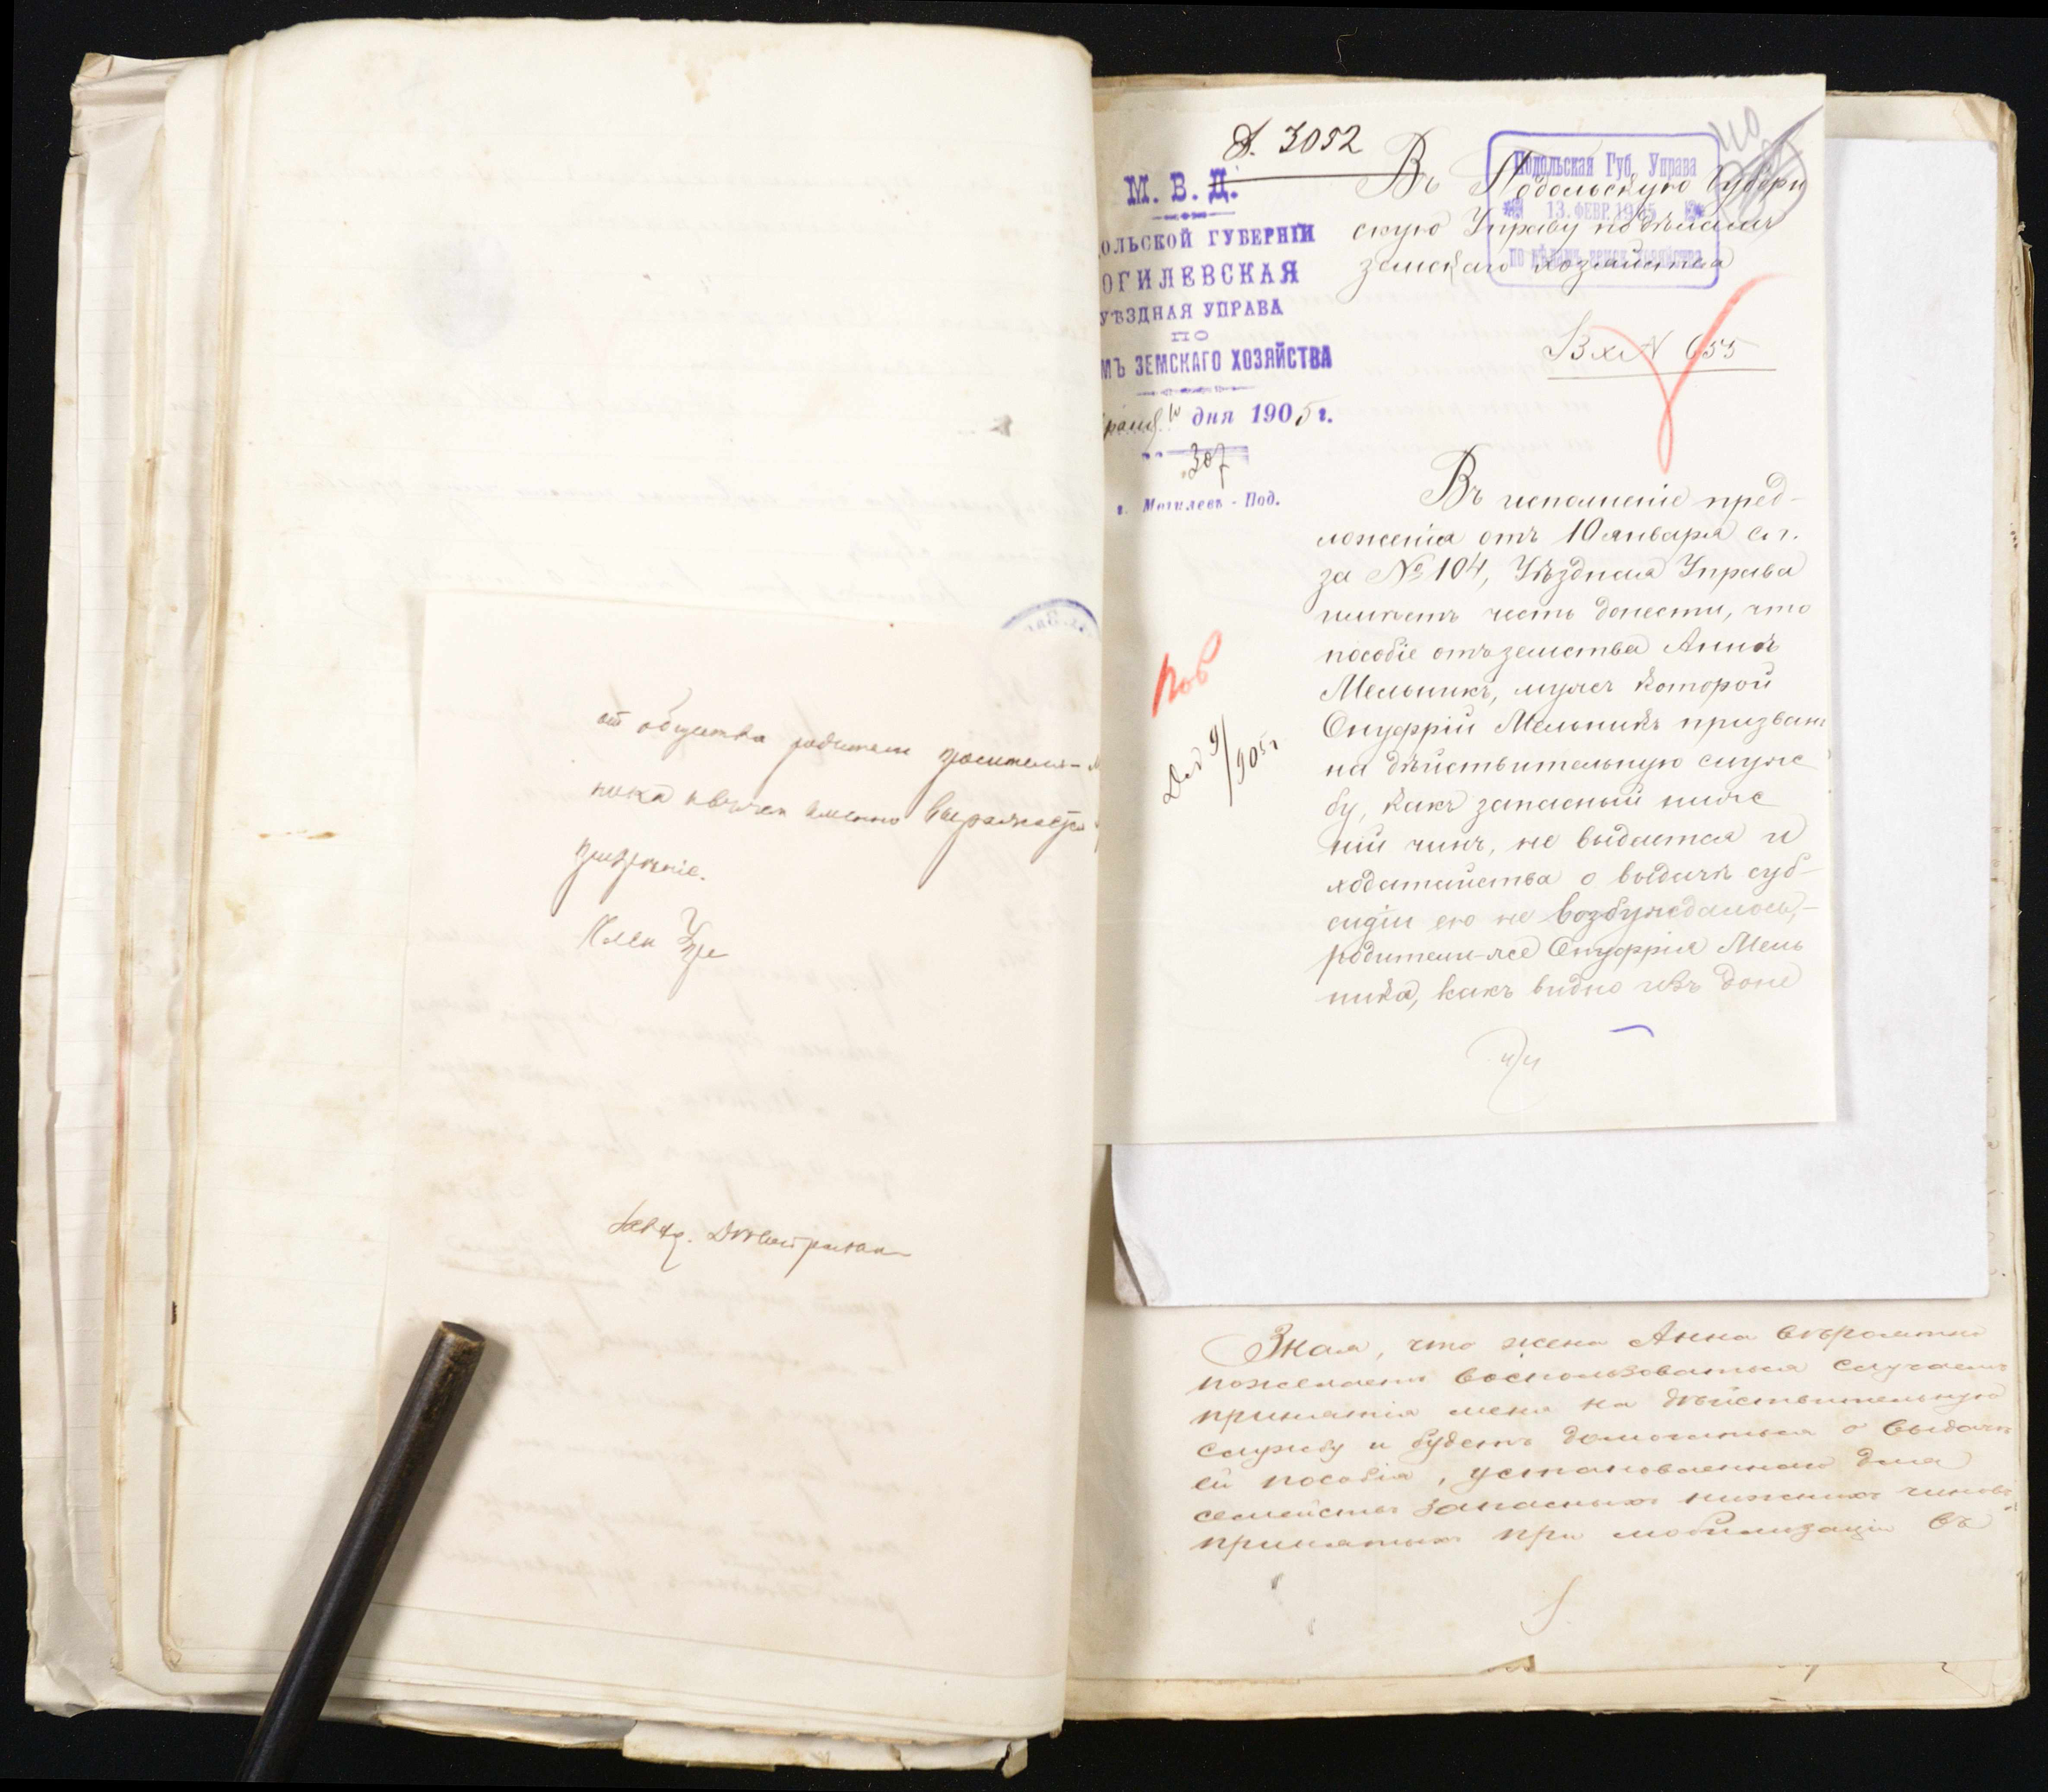 отъ общества родители просителя-
ника и въ чем именно выражается
призрѣніе.
Член Упр
Д. 3052
М. В. Д.
ОЛЬСКОЙ ГУБЕРНІИ
ОГИЛЕВСКАЯ
УѢЗДНАЯ УПРАВА
ПО
МЪ ЗЕМСКАГО ХОЗЯЙСТВА
дня 1905 г.
307
г. Могилевъ - Под.
Подольская Губ. Управа
13. ФЕВР. 1905
по дѣламъ земск. хозяйства
Въ Подольскую Губерн
скую Управу по дѣламъ
земскаго хозяйства
Вх N 655
Въ исполненіе пред-
ложенія отъ 10 января с. г.
за № 104, Уѣздная Управа
имѣетъ честь донести, что
пособіе отъ земства Аннѣ
Мельникъ, мужъ которой
Онуфрій Мельникъ призванъ
на дѣйствительную служ
бу, какъ запасный ниж
ній чинъ, не выдается и
ходатайства о выдачѣ суб-
сидіи ею не возбуждалось,-
родители-же Онуфрія Мель
ника, какъ видно изъ доне
Зная, что жена Анна вѣроятно
пожелаетъ воспользоваться случаемъ
принятія меня на дѣйствительную
службу и будетъ домогаться о выдачѣ
ей пособія, установленнаго для
семействъ запасныхъ нижнихъ чиновъ,
принятыхъ при мобилизаціи въ